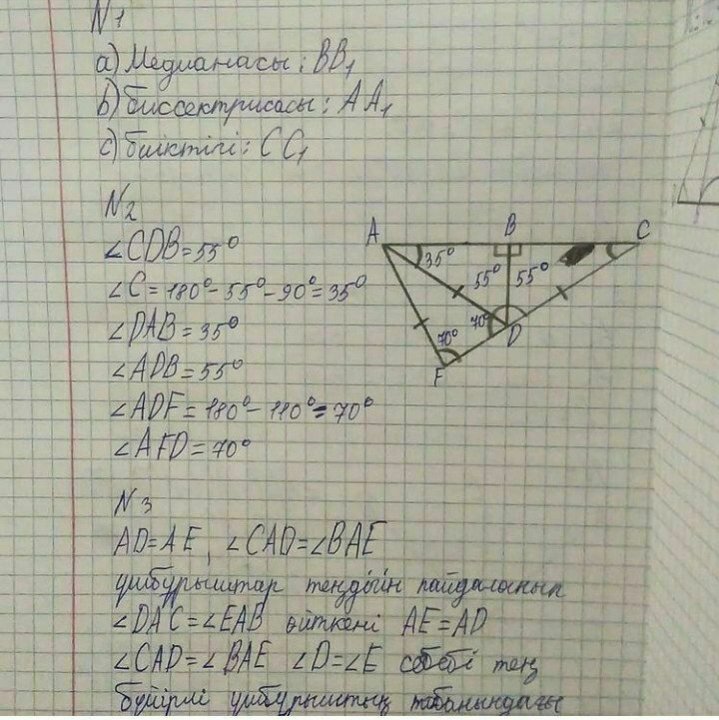 N1
a) Медианасы: BB₁
b) биссектрисасы: AA₁
c) биіктігі: CC₁
N2
∠CDB=55°
∠C=180°-55°-90°=35°
∠DAB=35°
∠ADB=55°
∠ADF=180°-110°=70°
∠AFD=70°
A B C
35° 55° 55°
70° 70° D
F
N3
AD=AE, ∠CAD=∠BAE
үшбұрыштар теңдігін пайдаланып
∠DAC=∠EAB өйткені AE=AD
∠CAD=∠BAE ∠D=∠E себебі тең
бүйірлі үшбұрыштың табанындағы